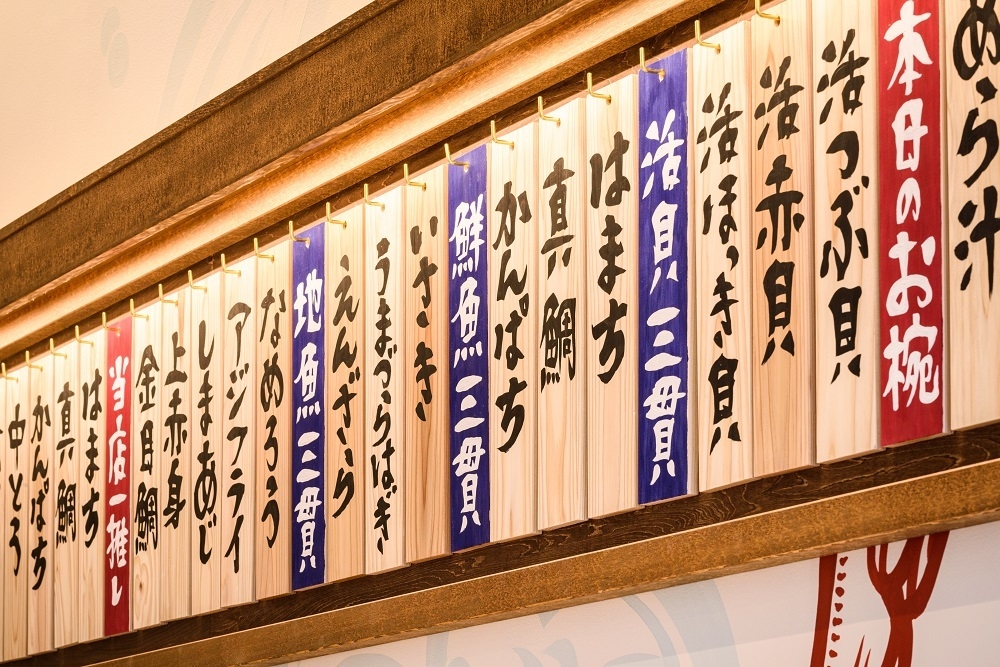 ぬらり汁
本日のお椀
活つぶ貝
活赤貝
活ほっき貝
活貝三貫
はまち
真鯛
かんぱち
鮮魚三貫
いさき
うまづらはぎ
えんざら
地魚三貫
なめろう
アジフライ
しまあじ
上赤身
金目鯛
当店一推し
はまち
真鯛
かんぱち
中とろ